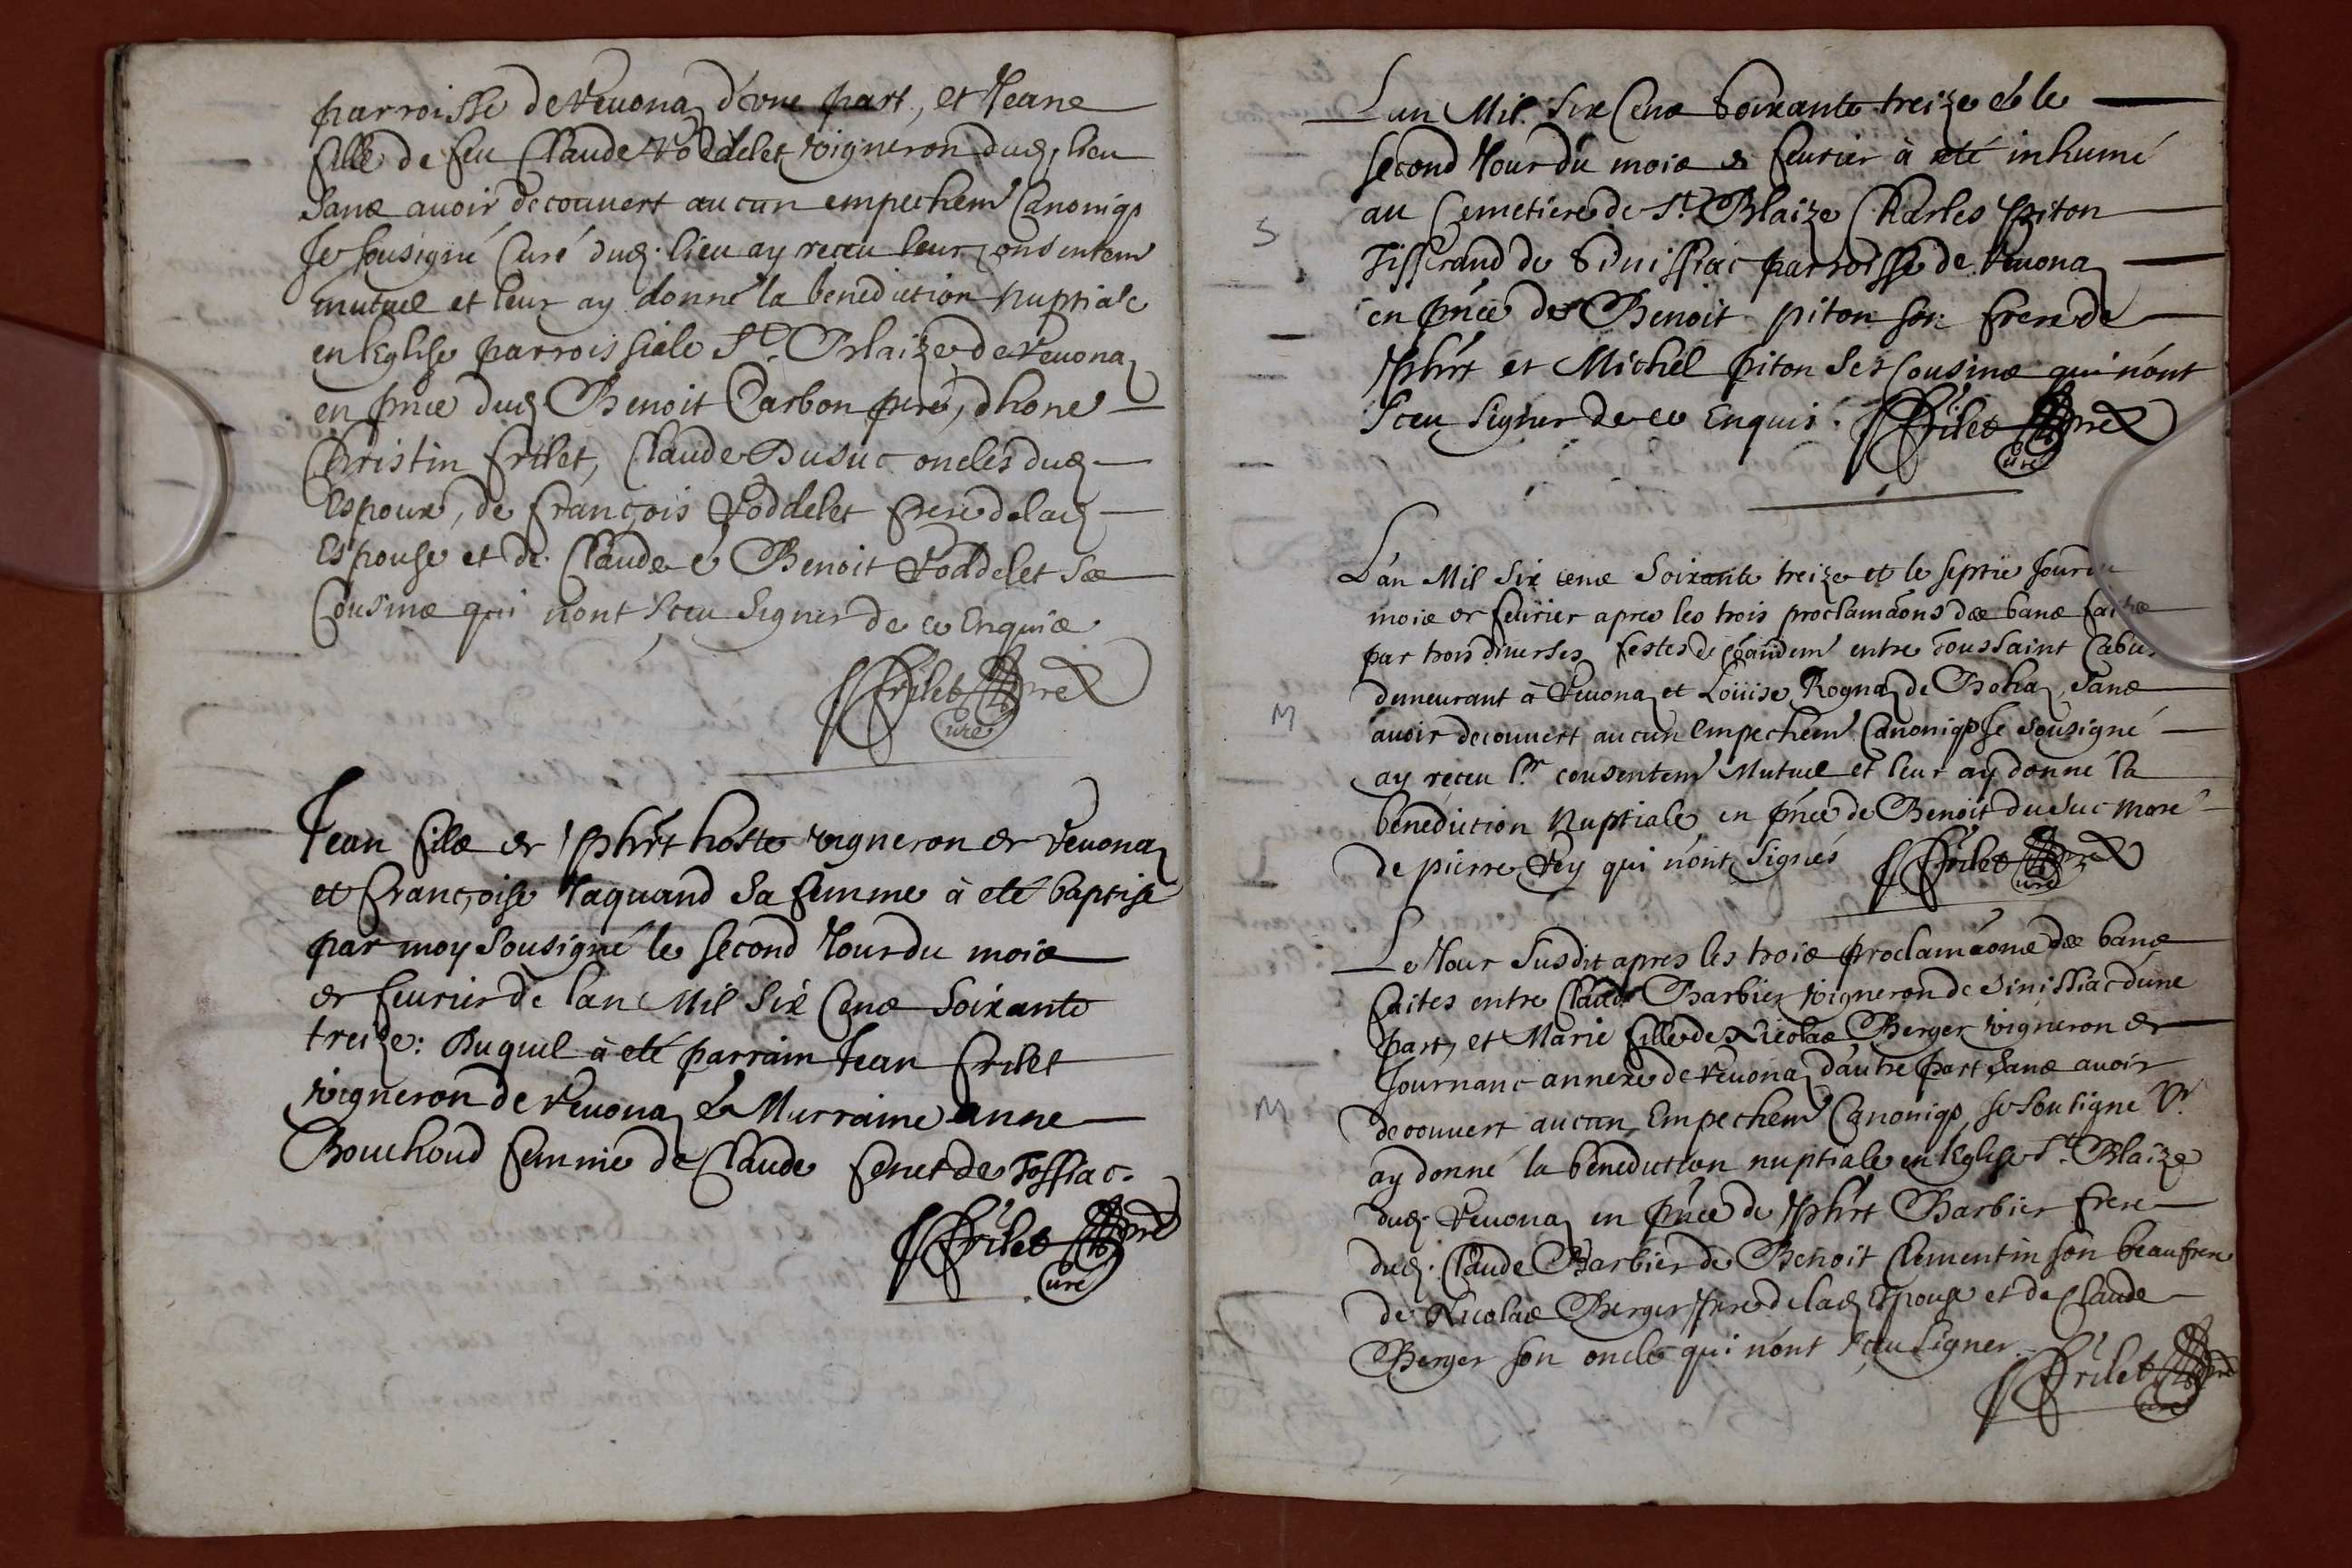 parroisse de Veuonaz d'vne part, et Jeane
fille de feu Claude Voddelet vigneron dud. lieu
Sans auoir decouuert aucun empechem Canoniq
Je sousigné Curé dud. lieu ay receu leur consentem
mutuel et leur ay donné la benediction Nuptiale
en lEglise parroissiale St. Blaize de Veuonaz
en pnce dud Benoit Carbon pere, dhone
Christin frilet, Claude Dusuc oncles dud
Espoux, de françois Voddelet frere delad
Espouse et de Claude & Benoit Voddelet ses
Cousins qui nont sceu signer de ce Enquis
frilet pre
Curé
Jean fils de hoste vigneron de Veuonaz
et françoise Jaquand Sa femme à eté baptisé
par moy sousigné le second Jour du mois
de feurier de lan Mil Six Cens Soixante
treize: Duquel à eté parrain Jean frilet
vigneron de Veuonaz & Murraine anne
Bouchoud femme de Claude fenet de Tossiac.
frilet pre
Curé
Lan Mil Six Cens Soixante treize & le
second Jour du mois de feurier à eté inhumé
S
au Cemetiere de St. Blaize Charles piton
Tisserand de Sinissiac parroisse de Veuonaz
en pnce de Benoit piton son frere de
et Michel piton ses Cousins qui nont
sceu signer de ce Enquis. frilet pre
Curé
Lán Mil Six cens Soixante treize et le septie Jour du
mois de feurier apres les trois proclamaons des bans faites
par trois diuerses festes de entre Toussaint
demeurant à Veuonaz et Loüise Rognaz de Bohaz, Sans
M
auoir decouuert aucun empechem Canoniq Je sousigné
ay receu lr. consentem Mutuel et leur ay donné la
benediction Nuptiale en pnce de Benoit Dusuc
de pierre Vey qui nónt signés frilet pre
Curé
Le Jour Susdit apres les trois proclamaons des bans
faites entre Claude Barbier vigneron de Sinissiac dúne
part, et Marie fille de Nicolas Berger vigneron de
Journanc annexe de Veuonaz dáutre part Sans auoir
M
decouuert aucun Empechem Canoniq, Je sousigne
ay donné la benediction nuptiale en lEglise St. Blaize
dud. Veuonaz en pnce de Barbier frere
dud. Claude Barbier de Benoit Clementin son beaufrere
de Nicolas Berger pere delad Espouse et de Claude
Berger son oncle qui nónt sceu signer.
frilet pre
Curé